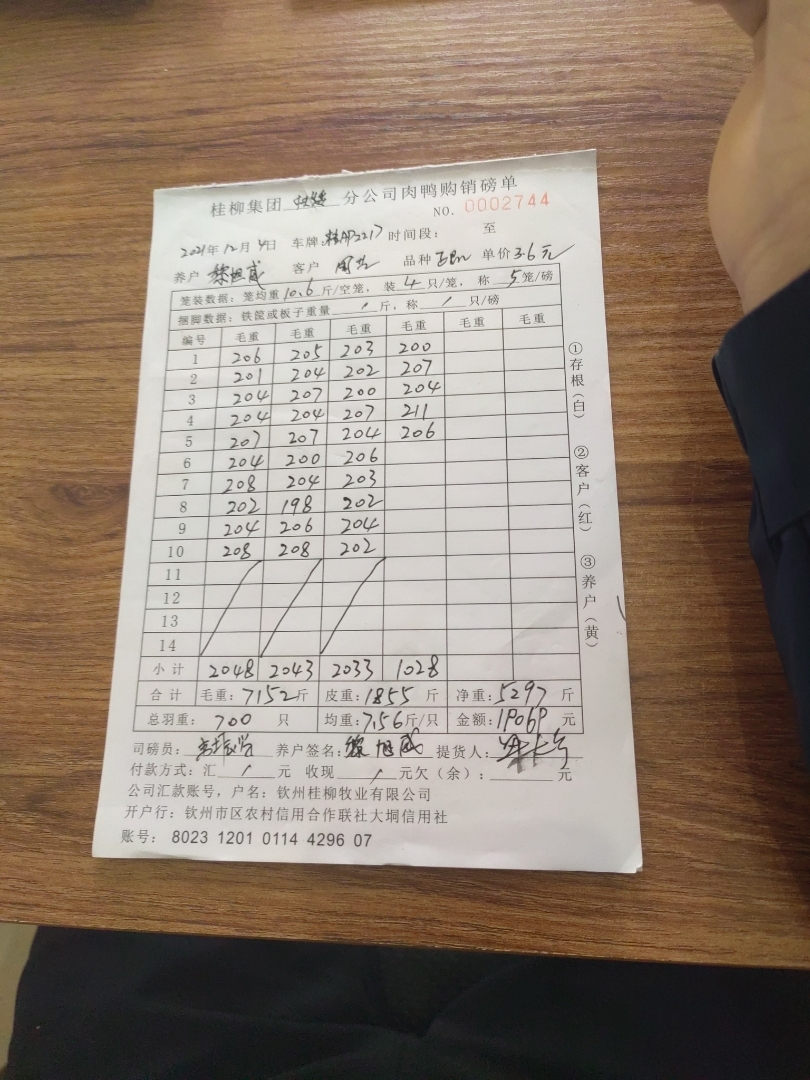 桂柳集团 分公司肉鸭购销磅单
NO. 0002744
2021年12月4日 车牌: 时间段: 至
养户 客户 品种 单价3.6元
笼装数据:笼均重10.6斤/空笼,装4只/笼,称5笼/磅
捆脚数据:铁筐或板子重量/斤,称/只/磅
编号 毛重 毛重 毛重 毛重 毛重 毛重
1 206 205 203 200
2 201 204 202 207
3 204 207 200 204
4 204 204 207 211
5 207 207 204 206
6 204 200 206
7 208 204 203
8 202 198 202
9 204 206 204
10 208 208 202
11
12
13
14
小计 2048 2043 2033 1028
合计 毛重:7152斤 皮重:1855斤 净重:5297斤
总羽重:700只 均重:7.56斤/只 金额:19069元
司磅员: 养户签名: 提货人:
付款方式:汇/元 收现/元欠(余): 元
公司汇款账号,户名:钦州桂柳牧业有限公司
开户行:钦州市区农村信用合作联社大垌信用社
账号: 8023 1201 0114 4296 07
①存根(白)
②客户(红)
③养户(黄)